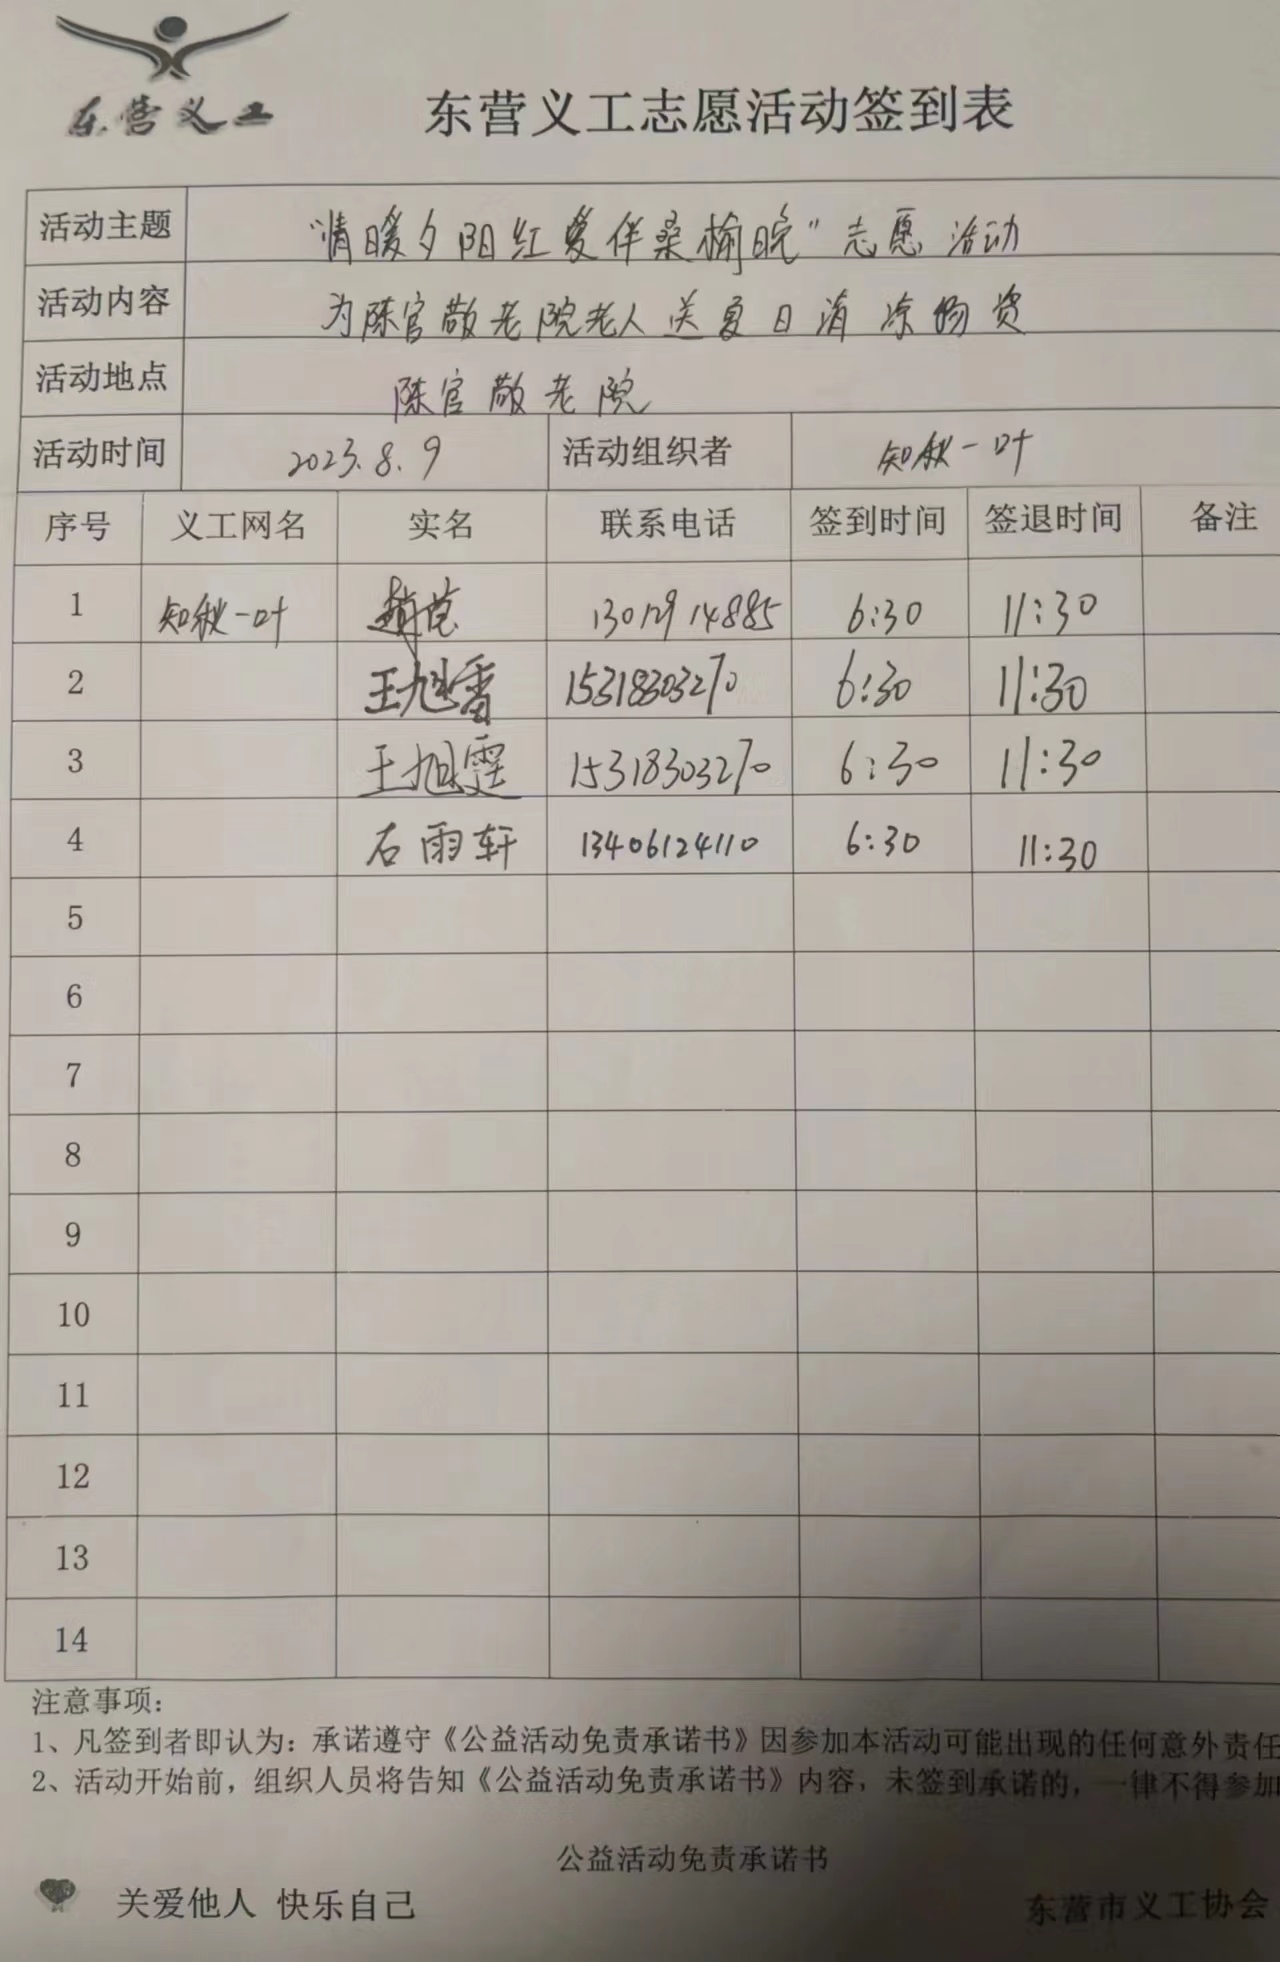 东营义工
东营义工志愿活动签到表
活动主题 “情暖夕阳红爱伴桑榆晚”志愿活动
活动内容 为陈官敬老院老人送夏日清凉物资
活动地点 陈官敬老院
活动时间 2023.8.9 活动组织者 知秋一叶
序号 义工网名 实名 联系电话 签到时间 签退时间 备注
1 知秋一叶 赵苑 13012914885 6:30 11:30
2 王旭雷 15318303270 6:30 11:30
3 王旭霆 15318303270 6:30 11:30
4 石雨轩 13406124110 6:30 11:30
5
6
7
8
9
10
11
12
13
14
注意事项:
1、凡签到者即认为：承诺遵守《公益活动免责承诺书》因参加本活动可能出现的任何意外责任
2、活动开始前，组织人员将告知《公益活动免责承诺书》内容，未签到承诺的，一律不得参加
公益活动免责承诺书
关爱他人 快乐自己
东营市义工协会